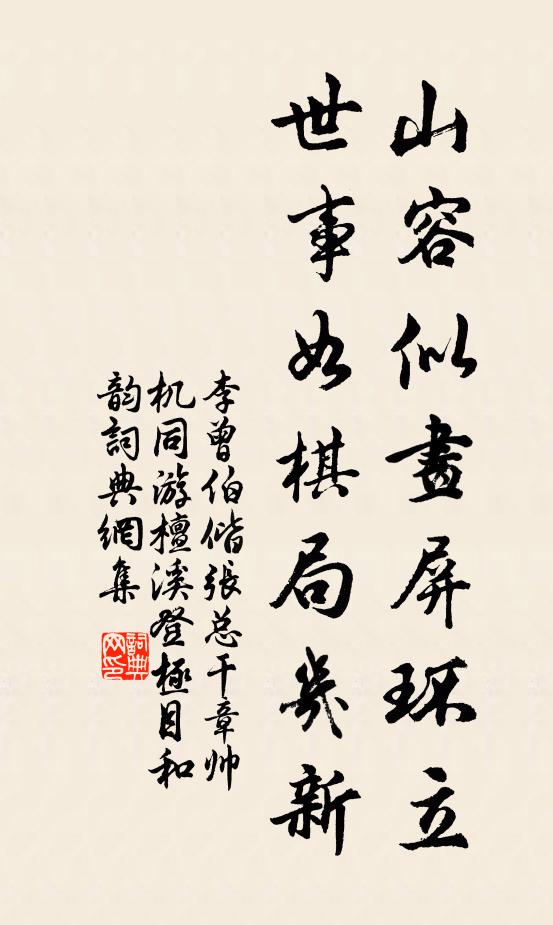 山容似畫屏环立
世事如棋局幾新
李曾伯偕張总干章帅
机同游檀溪登極目和
韵詞典網集
詞典网